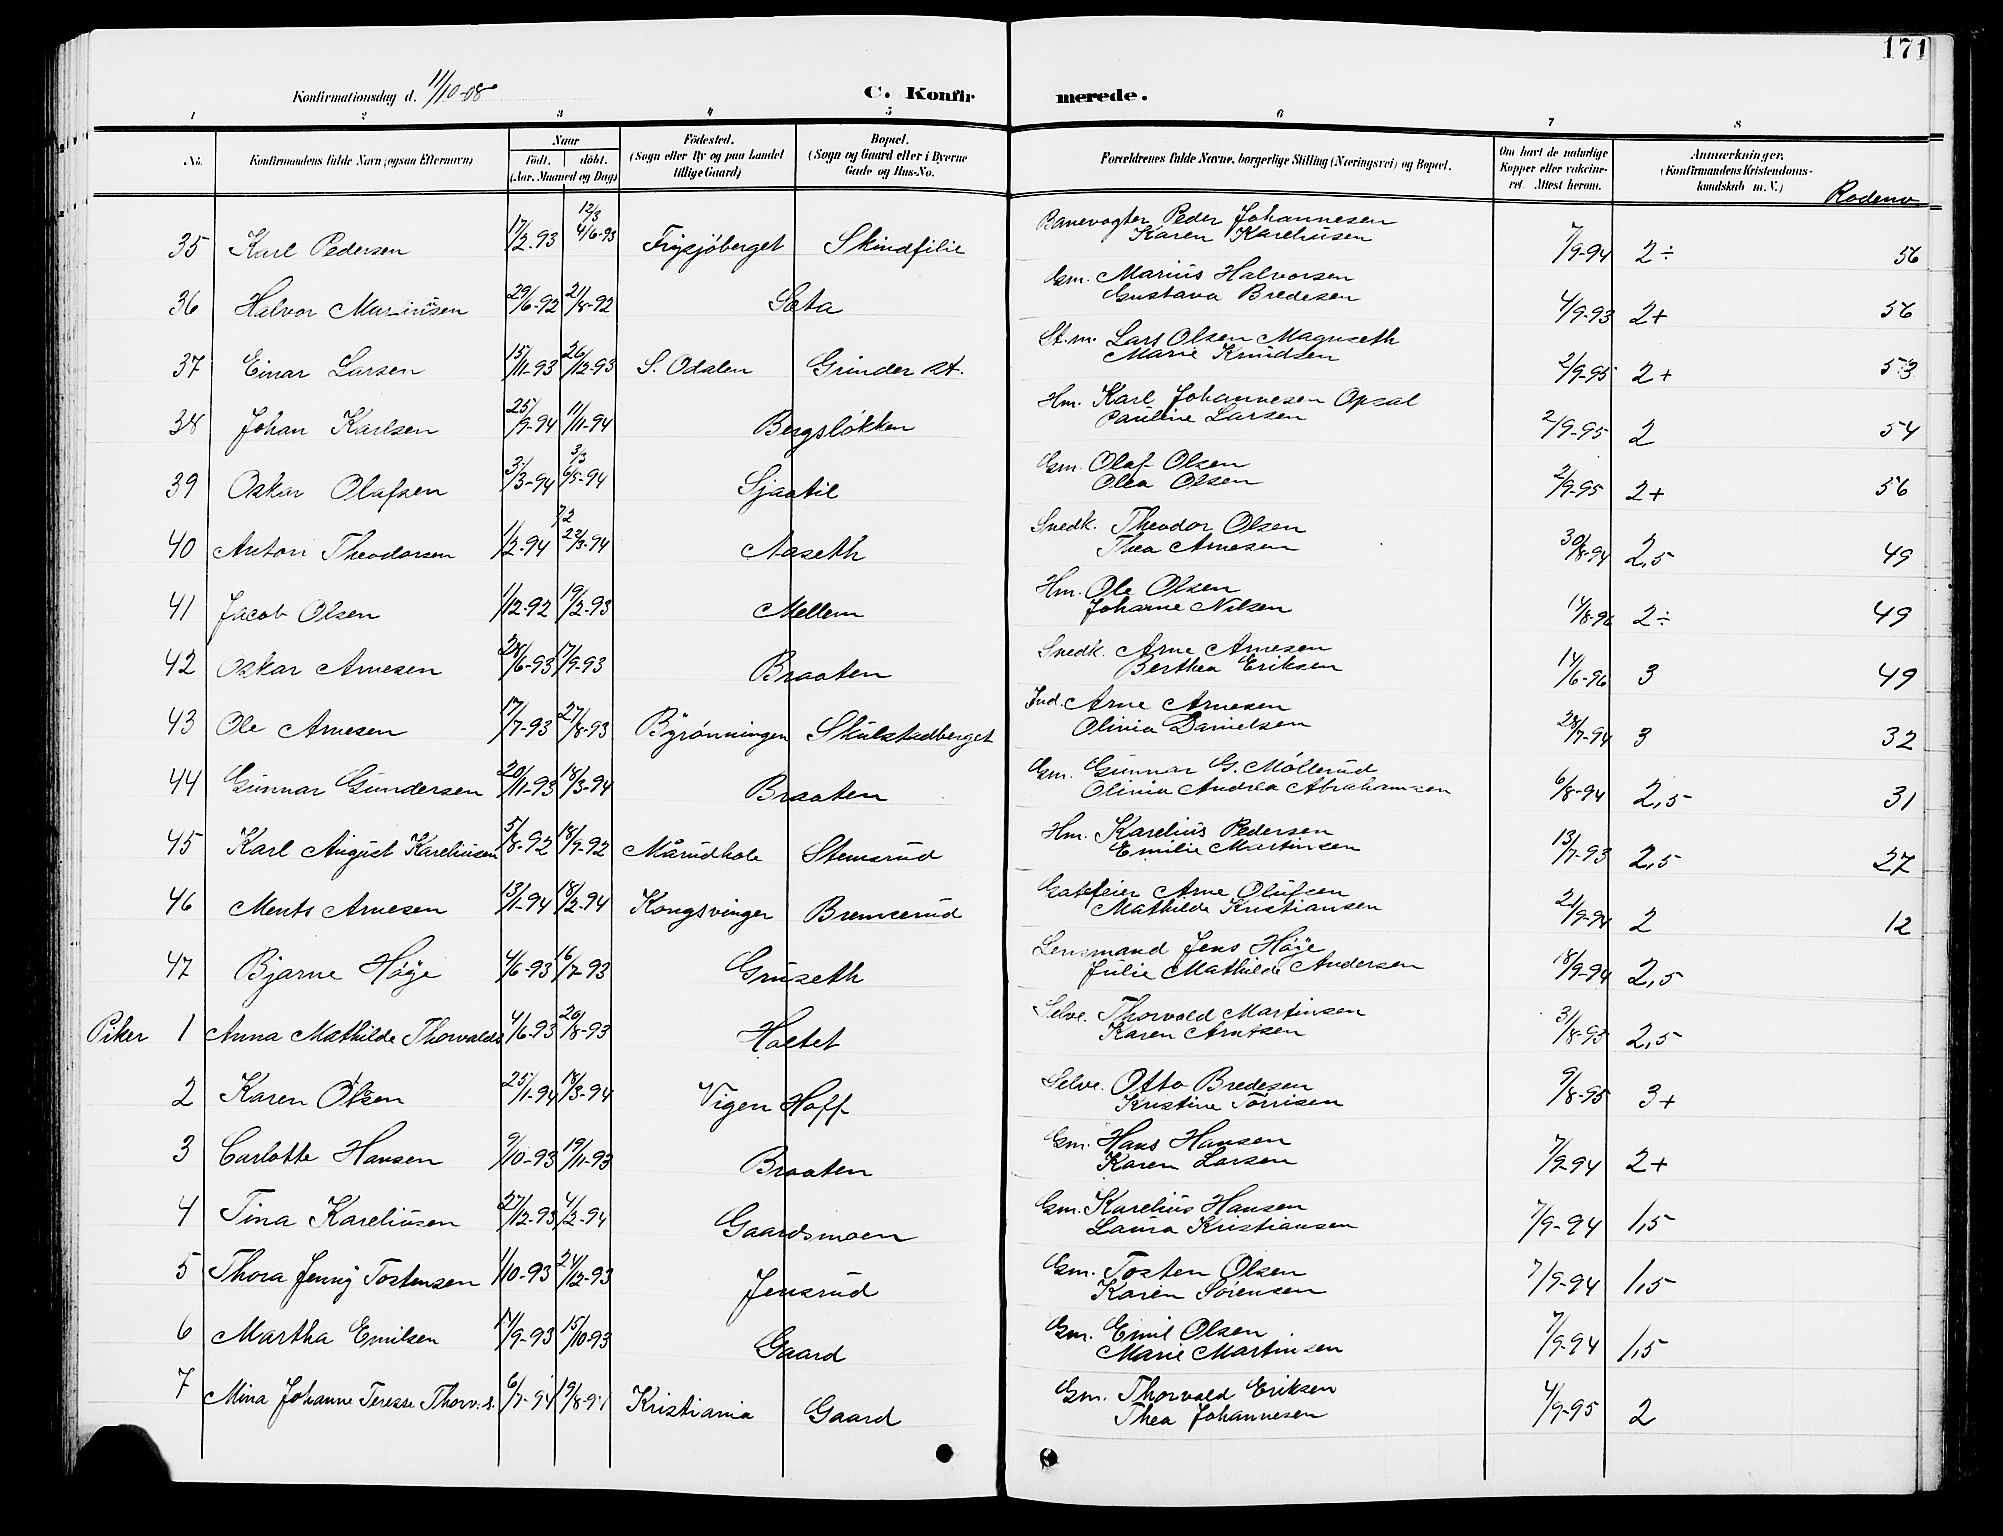 171
Konfirmationsdag d. 11/10-08
C. Konfirmerede.
1 2 3 4 5 6 7 8
No. Konfirmandens fulde Navn (ogsaa Efternavn) Naar født. døbt. (Aar, Maaned og Dag) Fødested. (Sogn eller By og paa Landet tillige Gaard) Bopæl. (Sogn og Gaard eller i Byerne Gade og Hus-No. Forældrenes fulde Navne, borgerlige Stilling (Næringsvei) og Bopæl. Om havt de naturlige Kopper eller vakcineret. Attest herom. Anmærkninger. (Konfirmandens Kristendomskundskab m. V.) Rodenr
35 Karl Pedersen 17/2-93 12/3 4/6-93 Frysjøberget Skindfilie Banevogter Peder Johannesen 7/9-94 2÷ 56
Karen Kareliusen
36 Halvor Mariusen 29/6-92 21/8-92 Sæta Gm. Marius Halvorsen 4/9-93 2+ 56
Gustava Bredesen
37 Einar Larsen 15/11-93 26/12-93 S. Odalen Grinder st. St.m. Lars Olsen Magnseth 2/9-95 2+ 53
Marie Knudsen
38 Johan Karlsen 25/9-94 11/11-94 Bergsløkken Hm. Karl Johannesen Opsal 2/9-95 2 54
Pauline Larsen
39 Oskar Olafsen 3/3-94 3/3 6/5-94 Sjaatil Gm. Olaf Olsen 2/9-95 2+ 56
Olea Olsen
40 Anton Theodorsen 1/2-94 7/2 22/3-94 Aaseth Snedk. Theodor Olsen 30/8-94 2,5 49
Thea Arnesen
41 Jacob Olsen 1/12-92 19/2-93 Mellem Hm. Ole Olsen 14/8-96 2÷ 49
Johanne Nilsen
42 Oskar Arnesen 28/6-93 17/9-93 Braaten Snedk. Arne Arnesen 14/6-96 3 49
Berthea Eriksen
43 Ole Arnesen 17/7-93 27/8-93 Bÿrønningen Skulstadberget Ind. Arne Arnesen 28/7-94 3 32
Olivia Danielsen
44 Gunnar Gundersen 20/11-93 18/3-94 Braaten Gm. Gunnar G. Møllerud 6/8-94 2,5 31
Olivia Andrea Abrahamsen
45 Karl August Kareliusen 5/8-92 18/9-92 Mårudhole Stemsrud Hm. Karelius Pedersen 13/7-93 2,5 27
Emilie Martinsen
46 Ments Arnesen 13/1-94 18/2-94 Kongsvinger Bremserud Gatefeier Arne Olufsen 21/9-94 2 12
Mathilde Kristiansen
47 Bjarne Høÿe 4/6-93 16/7-93 Gruseth Lensmand Jens Høÿe 18/9-94 2,5
Julie Mathilde Andersen
Piker 1 Anna Mathilde Thorvalds 4/6-93 20/8-93 Holtet Selve. Thorvald Martinsen 31/8-95 2,5
Karen Arntsen
2 Karen Olsen 25/1-94 18/3-94 Vigen Hoff Selve. Otto Bredesen 9/8-95 3+
Kristine Torrisen
3 Carlotte Hansen 9/10-93 19/11-93 Braaten Gm. Hans Hansen 7/9-94 2+
Karen Larsen
4 Tina Kareliusen 27/12-93 4/2-94 Gaardsmoen Gm. Karelius Hansen 7/9-94 1,5
Laura Kristiansen
5 Thora Jenny Tostensen 1/10-93 24/12-93 Jensrud Gm. Tosten Olsen 7/9-94 1,5
Karen Sørensen
6 Martha Emilsen 14/9-93 15/10-93 Gaard Gm. Emil Olsen 7/9-94 1,5
Marie Martinsen
7 Mina Johanne Terese Thorv.s. 6/7-94 19/8-94 Kristiania Gaard Gm. Thorvald Eriksen 4/9-95 2
Thea Johannesen